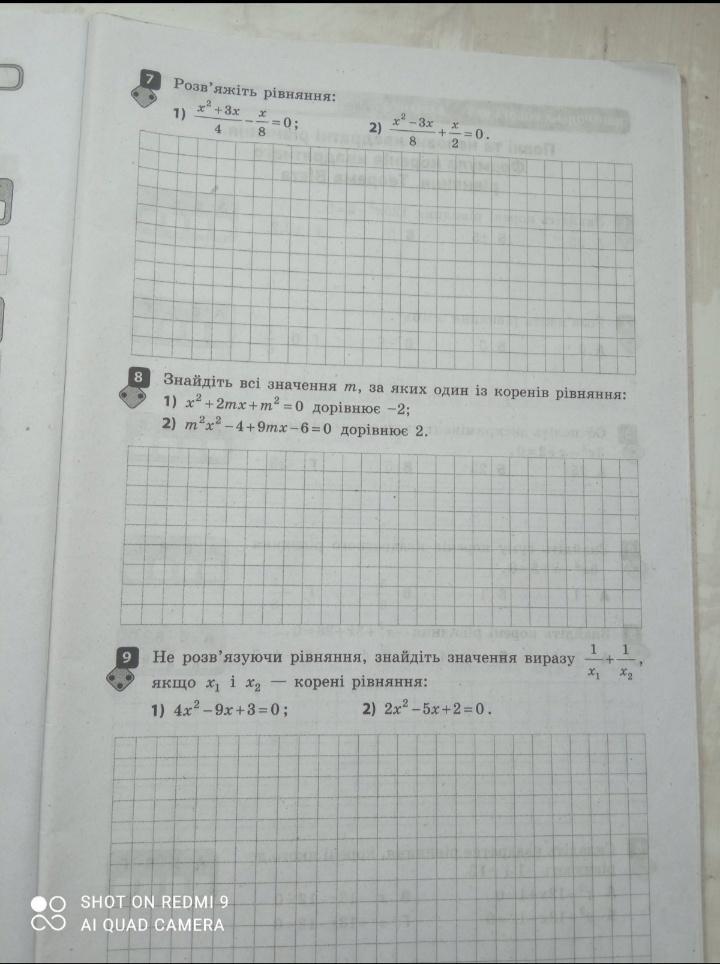 7 Розв'яжіть рівняння:
1) (x²+3x)/4 − x/8 = 0; 2) (x²−3x)/8 + x/2 = 0.
8 Знайдіть всі значення m, за яких один із коренів рівняння:
1) x²+2mx+m²=0 дорівнює −2;
2) m²x²−4+9mx−6=0 дорівнює 2.
9 Не розв'язуючи рівняння, знайдіть значення виразу 1/x₁ + 1/x₂,
якщо x₁ і x₂ — корені рівняння:
1) 4x²−9x+3=0; 2) 2x²−5x+2=0.
SHOT ON REDMI 9
AI QUAD CAMERA